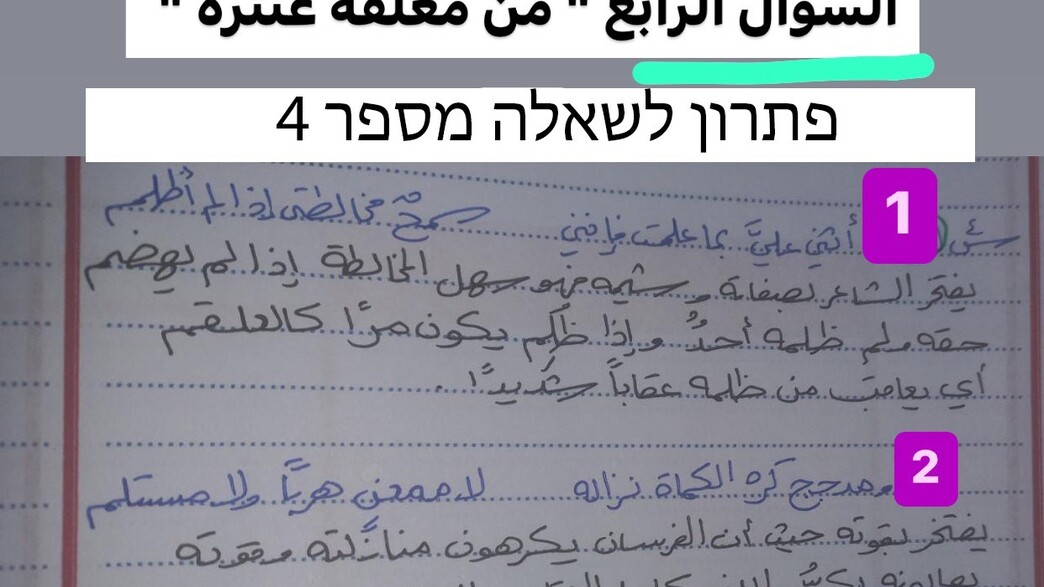 السؤال الرابع " من معلقة عنترة "
פתרון לשאלה מספר 4
1
أثني عليَّ بما علمت فإنني سمحٌ مخالطتي إذا لم أُظلم
يفتخر الشاعر بصفاته وشيمه فهو سهل المخالطة إذا لم يهضم
حقه ولم ظلمه أحدٌ وإذا ظُلم يكون مرًّا كالعلقم
أي يعاقب من ظلمه عقاباً شديدًا.
2
ومدجج كره الكماة نزاله لا ممعن هربًا ولا مستسلم
يفتخر بقوته حيث أن الفرسان يكرهون منازلته وقوته